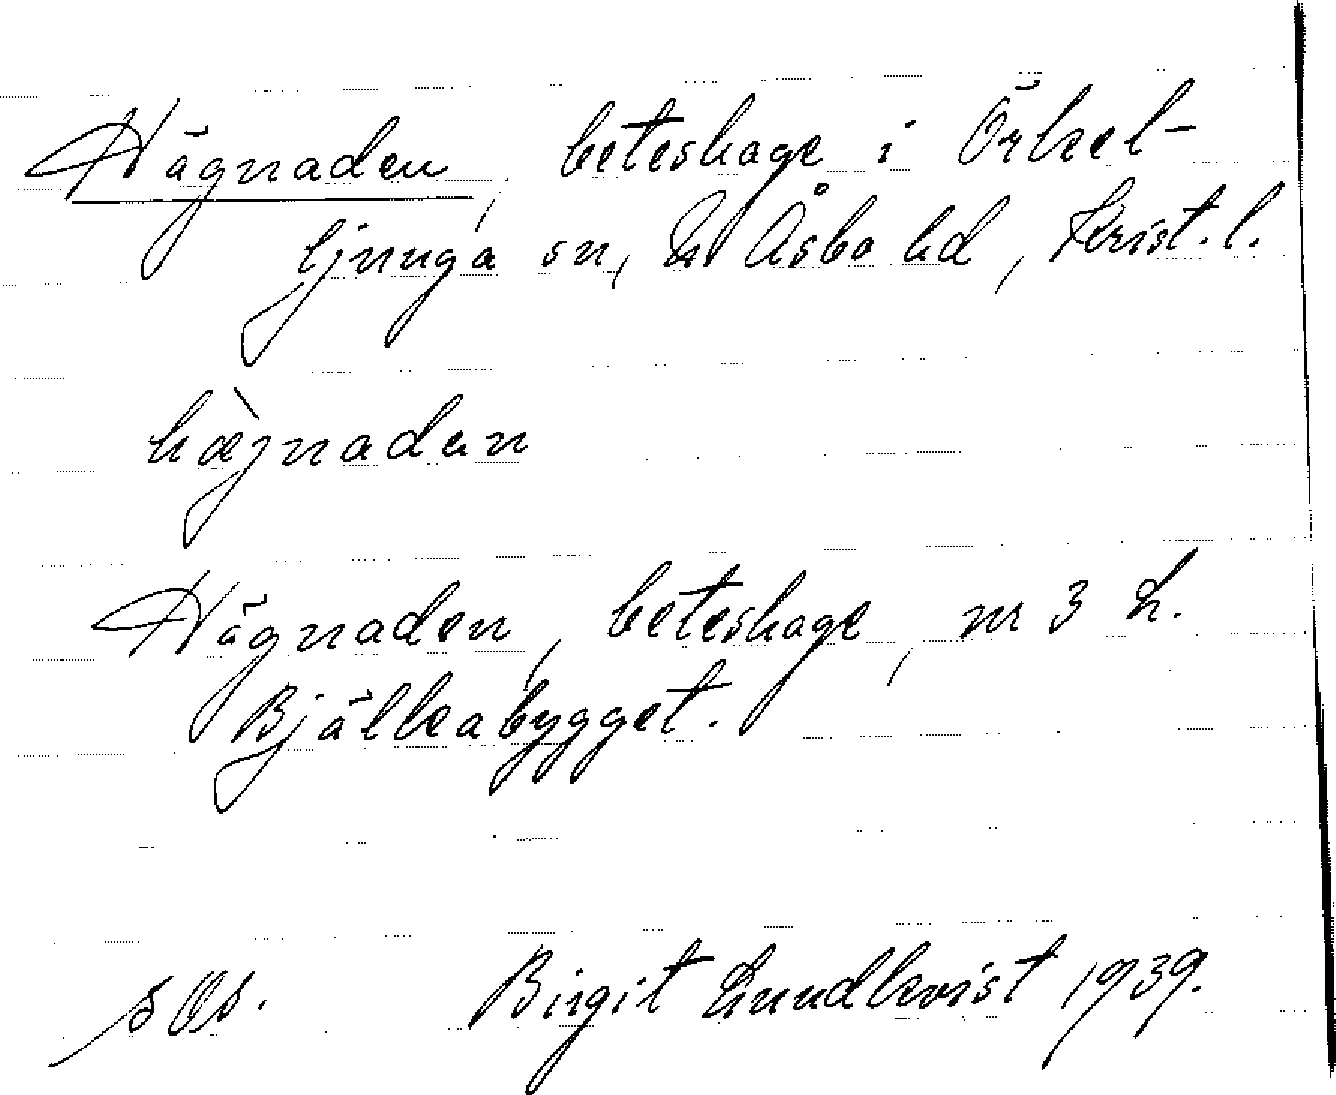 Hägnaden, beteshage i Örkel-
ljunga sn, N Åsbo hd, Krist. l.
hæ̀jnadan
Hägnaden, beteshage, nr 3 L.
Bjälkabygget.
Birgit Lundkvist 1939.